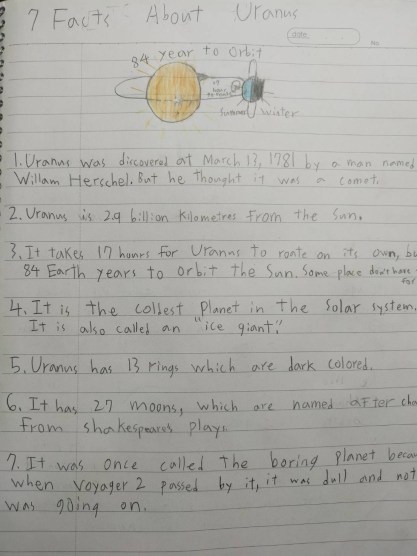 7 Facts About Uranus
date:
No.
84 year to orbit
summer winter
1. Uranus was discovered at March 13, 1781 by a man named
Willam Herschel. But he thought it was a comet.
2. Uranus is 2.9 billion kilometres from the Sun.
3. It takes 17 hours for Uranus to roate on its own, bu
84 Earth years to orbit the Sun. Some place
for
4. It is the coldest Planet in the Solar system.
It is also called an "ice giant".
5. Uranus has 13 rings which are dark colored.
6. It has 27 moons, which are named after cha
from shakespeares plays.
7. It was once called the boring planet becau
when Voyager 2 passed by it, it was dull and not
was going on.